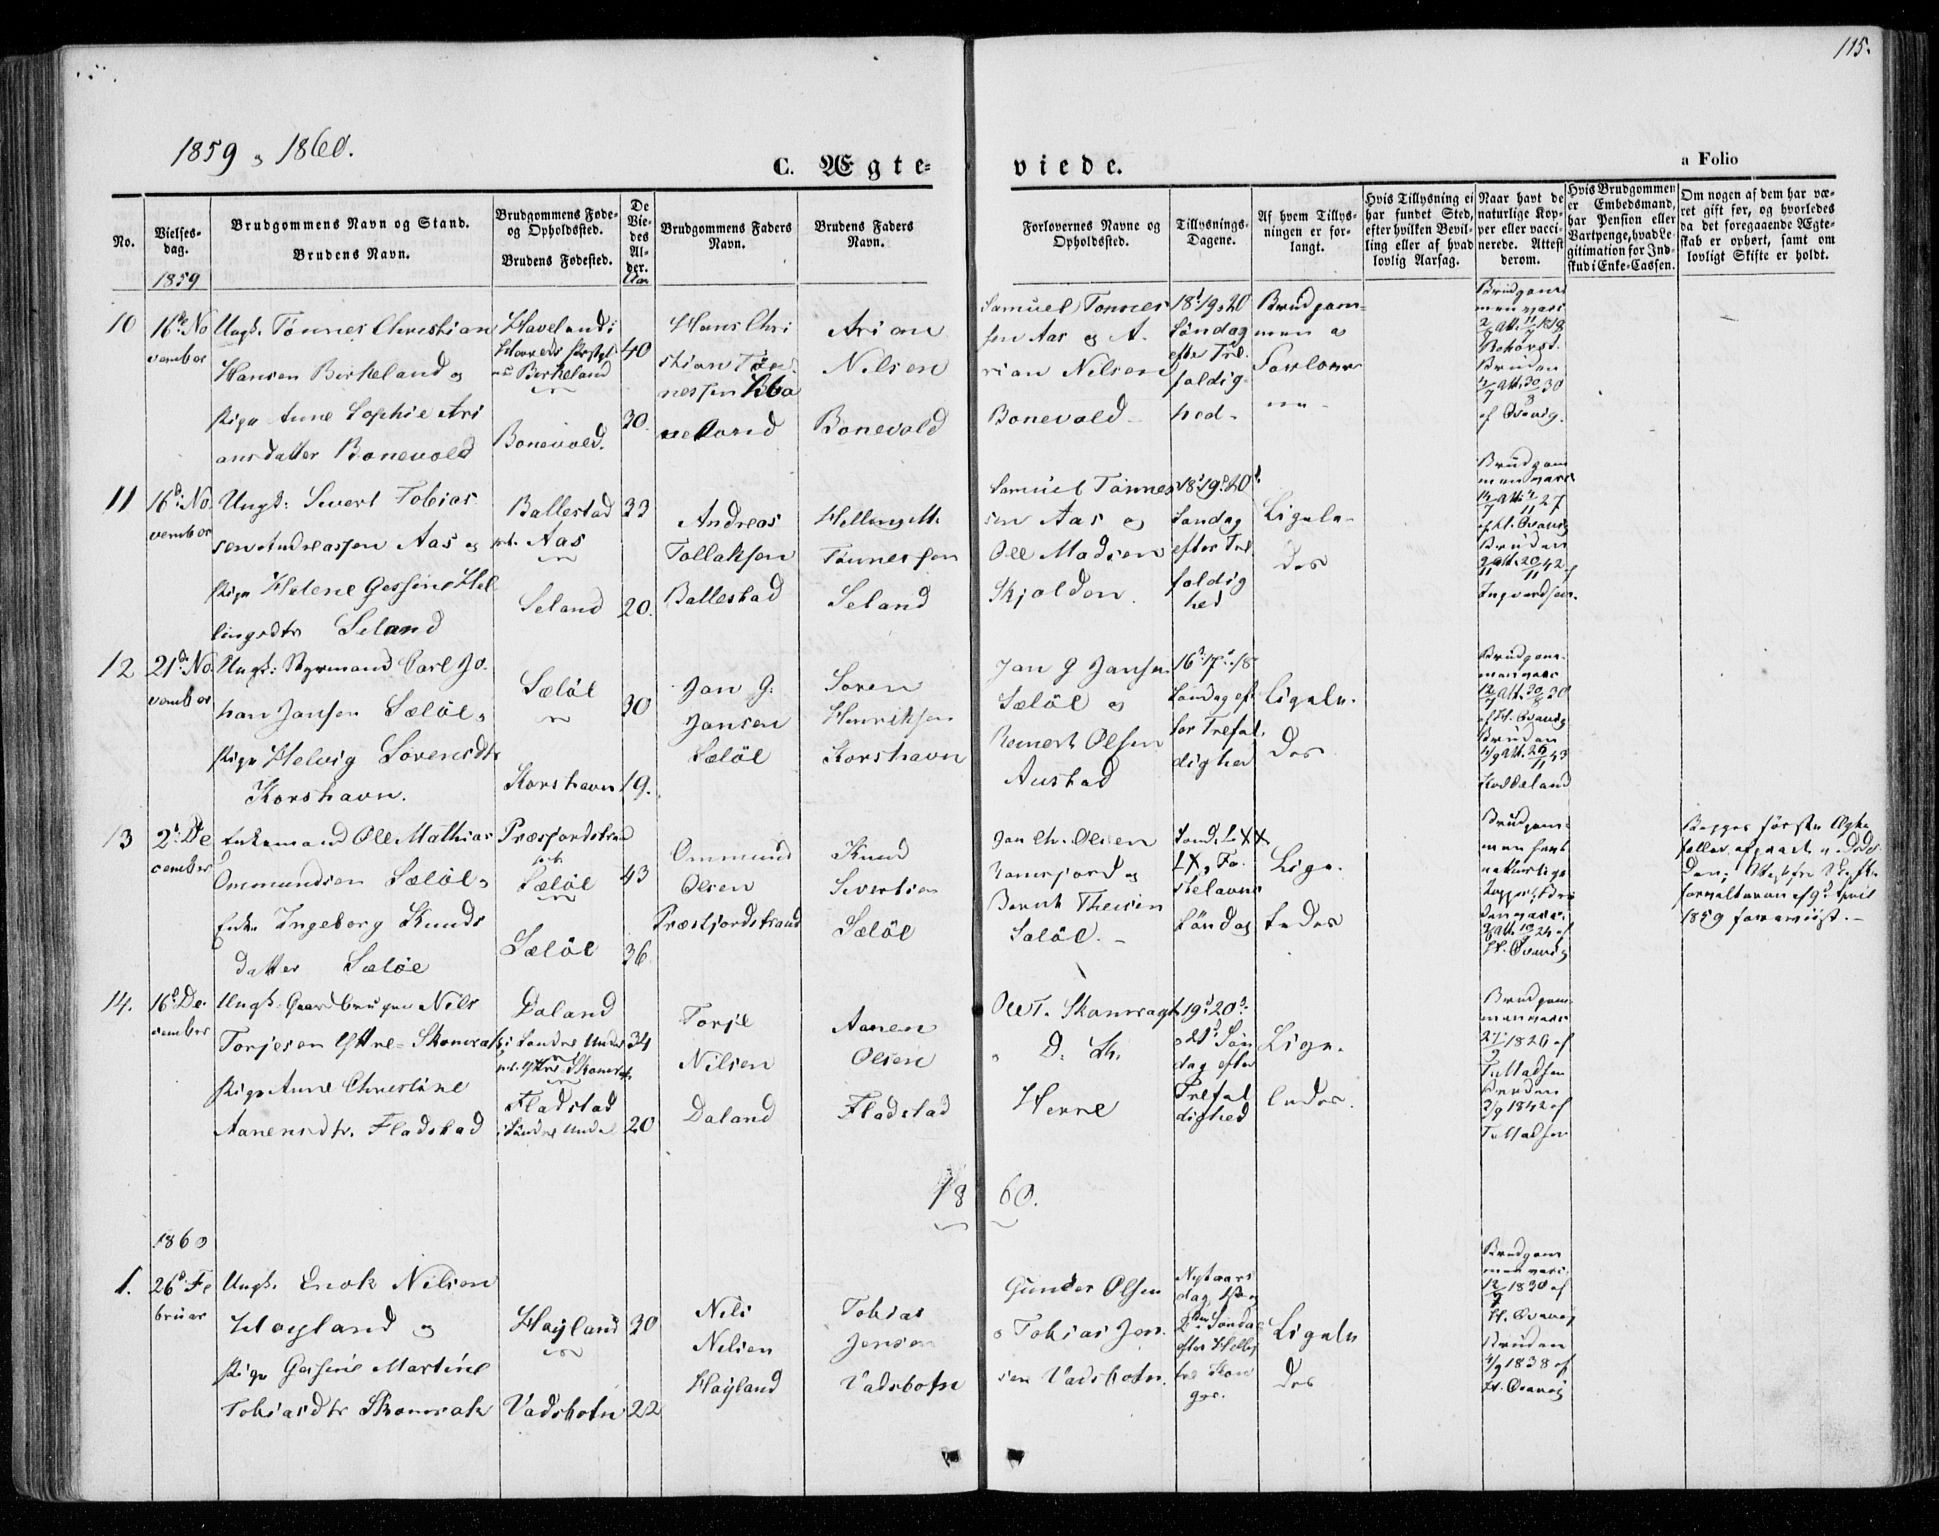 115.
1859 & 1860.
C. Ægte- viede.
a Folio
No.
Vielses-
dag.
1859
Brudgommens Navn og Stand.
Brudens Navn.
Brudgommens Føde-
og Opholdssted.
Brudens Fødested.
De
Vie-
des
Al-
der.
Aar
Brudgommens Faders
Navn.
Brudens Faders
Navn.
Forlovernes Navne og
Opholdssted.
Tillysnings-
Dagene.
Af hvem Tillys-
ningen er for-
langt.
Hvis Tillysning ei
har fundet Sted,
efter hvilken Bevil-
ling eller af hvad
lovlig Aarsag.
Naar havt de
naturlige Kop-
per eller vacci-
nerede. Attest
derom.
Hvis Brudgommen
er Embedsmand,
har Pension eller
Vartpenge, hvad Le-
gitimation for Ind-
skud i Enke-Cassen.
Om nogen af dem har væ-
ret gift før, og hvorledes
da det foregaaende Ægte-
skab er ophørt, samt om
lovligt Skifte er holdt.
10
16de No
vember
Ungk. Tønnes Christian
Hansen Birkeland og
Pige Anne Sophie Ari
ansdatter Bonevold
Haveland i
Birkeland
Bonevold.
40
30.
Hans Chri
stian Tøn
nessen
Arian
Nilsen
Bonevold
Samuel Tønnes
sen Aas og A.
rian Nilsen
Bonevold
18de 19 & 20
Søndag
efter Tre
foldig
hed
Brudgom-
men &
Forlover
ne
Brudgom
men vacc
Bruden
11
16d: No
vember
Ungk: Sivert Tobias
sen Andreassen Aas og
Pige Helene Gessine Hel
lingsdtr Seland
Ballestad
Aas
Seland
33
20.
Andreas
Tollaksen
Ballestad
Helling M.
Tønnessen
Seland
Samuel Tønnes
sen Aas og
Ole Madsen
Skjolden.
18d 19d & 20d
Søndag
efter Tre
foldig
hed
Ligele-
des
Brudgom
men vacc
af H. Qvavig
Bruden
Ingvardsen.
12
21d No
vember
Ungk: Styrmand Carl Jo
han Jansen Seløe &
Pige Helvig Sørensdtr
Korshavn.
Seløe
Korshavn
30
19.
Jan G.
Jansen
Seløe
Søren
Henriksen
Korshavn
Jan G Jansen
Seløe og
Reinert Olsen
Austad
16d 17d & 18
Søndag ef
ter Trefol
dighed
Ligele-
des
Brudgom
men vacc
af H. Qvavig
Bruden
13
2d De
cember
Enkemand Ole Mathias
Ommundsen Seløe &
Enke Ingeborg Knuds
datter Seløe
Præstfjordstrand
Seløe
Seløe
43
36.
Ommund
Olsen
Præstfjordstrand
Knud
Sivertsen
Seløe
Jan Chr. Olsen
og
Berndt Theisen
Seløe.
Fa
stelavns
Søndag
Lige-
ledes
Brudgom
men havt
naturlige
Kopper, Bru
den vacc.
H. Qvavig
Begges første Ægte
1859 forevist.
14.
16d De
cember
Ungk. Gaardbruger Nils
Torjesen Yttre-Skomrak
Pige Anne Christine
Aanensdtr. Fladstad
Daland
i Søndre Undal
Fladstad
i Søndre Undal
34
20
Torje
Nilsen
Daland
Aanen
Olsen
Fladstad
Ole T. Skomragh
& D. Th.
Herre
19d 20d
& 21d Søn
dag efter
Trefol
dighed
Lige-
ledes.
Brudgom
men vacc
1826 af
T. Madsen
Bruden
3/9 1842 af
T. Madsen
18 60.
1860
1.
26d Fe
bruar
Ungk. Enok Nilsen
Høyland og
Pige Gesine Martine
Tobiasdtr Skomrak
Høyland
Vadsbotn
30
22
Nils
Nilsen
Høyland
Tobias
Jensen
Vadsbotn
Gunder Olsen
& Tobias Jen
sen Vadsbotn.
Nytaars
dag
Søndag
efter Hellig
tre Kon
ger.
Ligele
des
Brudgom
men vacc.
1830 af
H. Qvavig
Bruden
4/9 1838 af
H. Qvavig